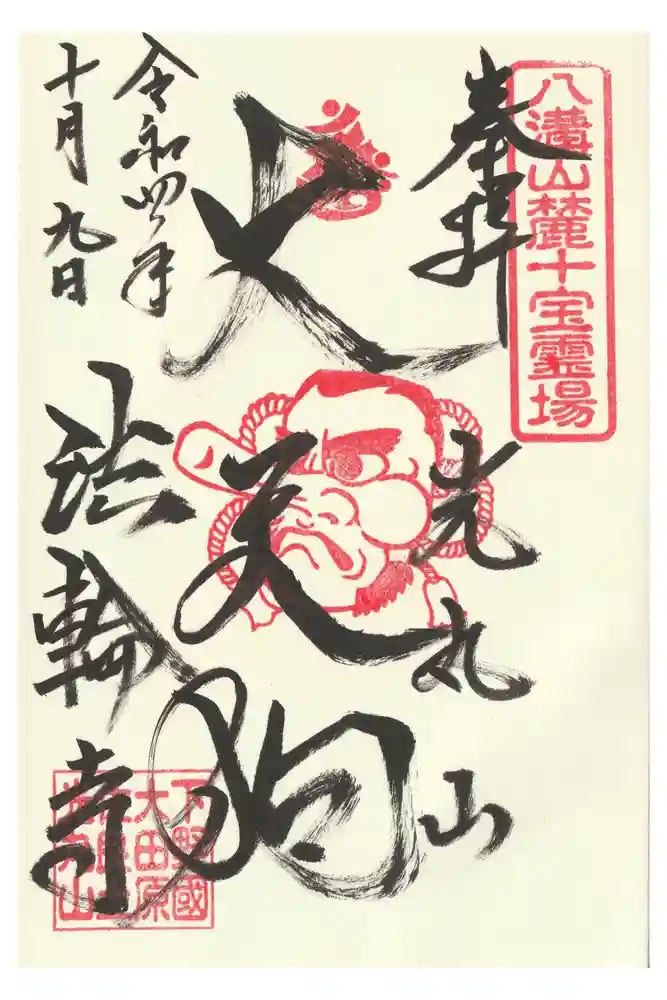 八溝山麓十宝霊場
奉拝
光丸山
大天狗
令和四年
十月九日
法輪寺
下野國
大田原
光丸山